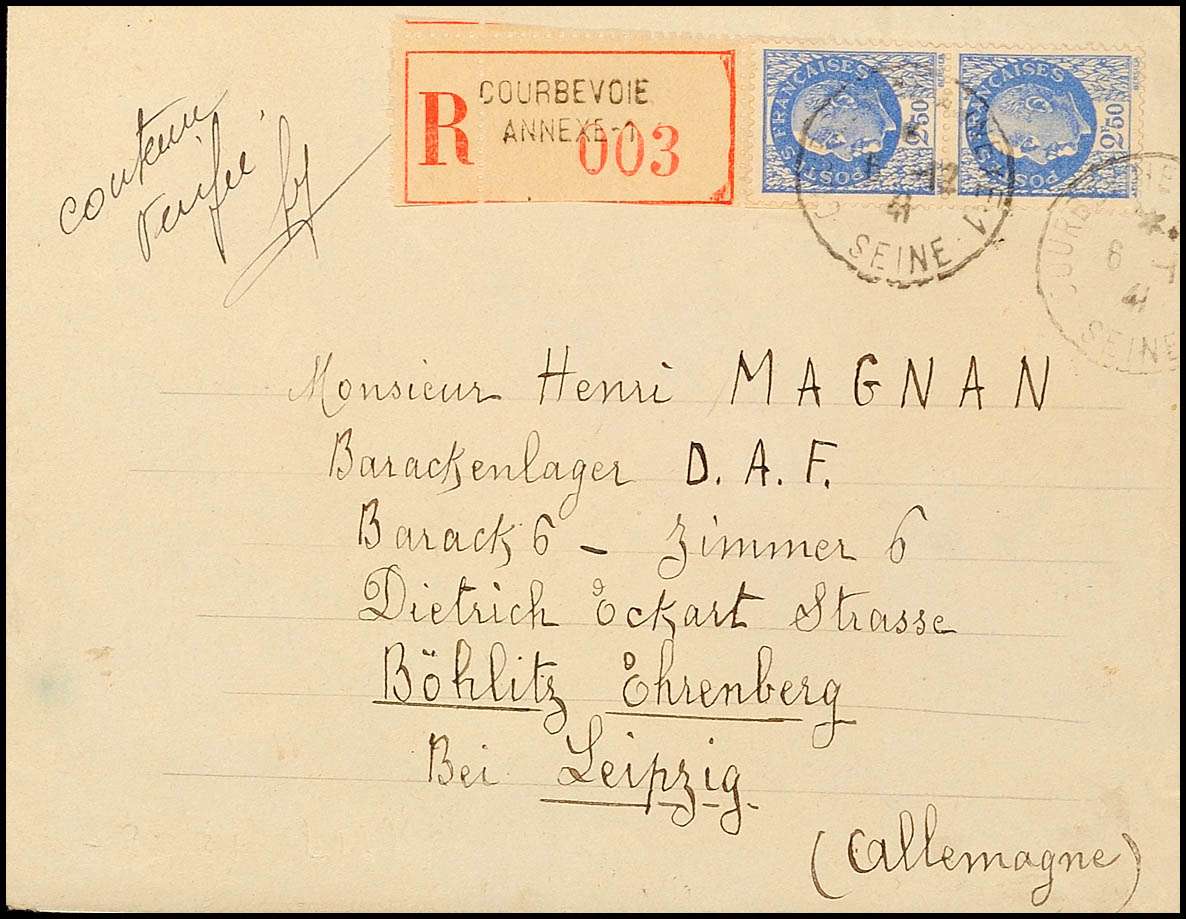 contenu
vérifié
R
COURBEVOIE
ANNEXE-1
003
POSTES FRANÇAISES
2F50
POSTES FRANÇAISES
2F50
6 -12
41
SEINE
COURB
6
41
SEINE
Monsieur Henri MAGNAN
Barackenlager D.A.F.
Barack 6 - Zimmer 6
Dietrich Eckart Strasse
Böhlitz Ehrenberg
Bei Leipzig.
(Allemagne)